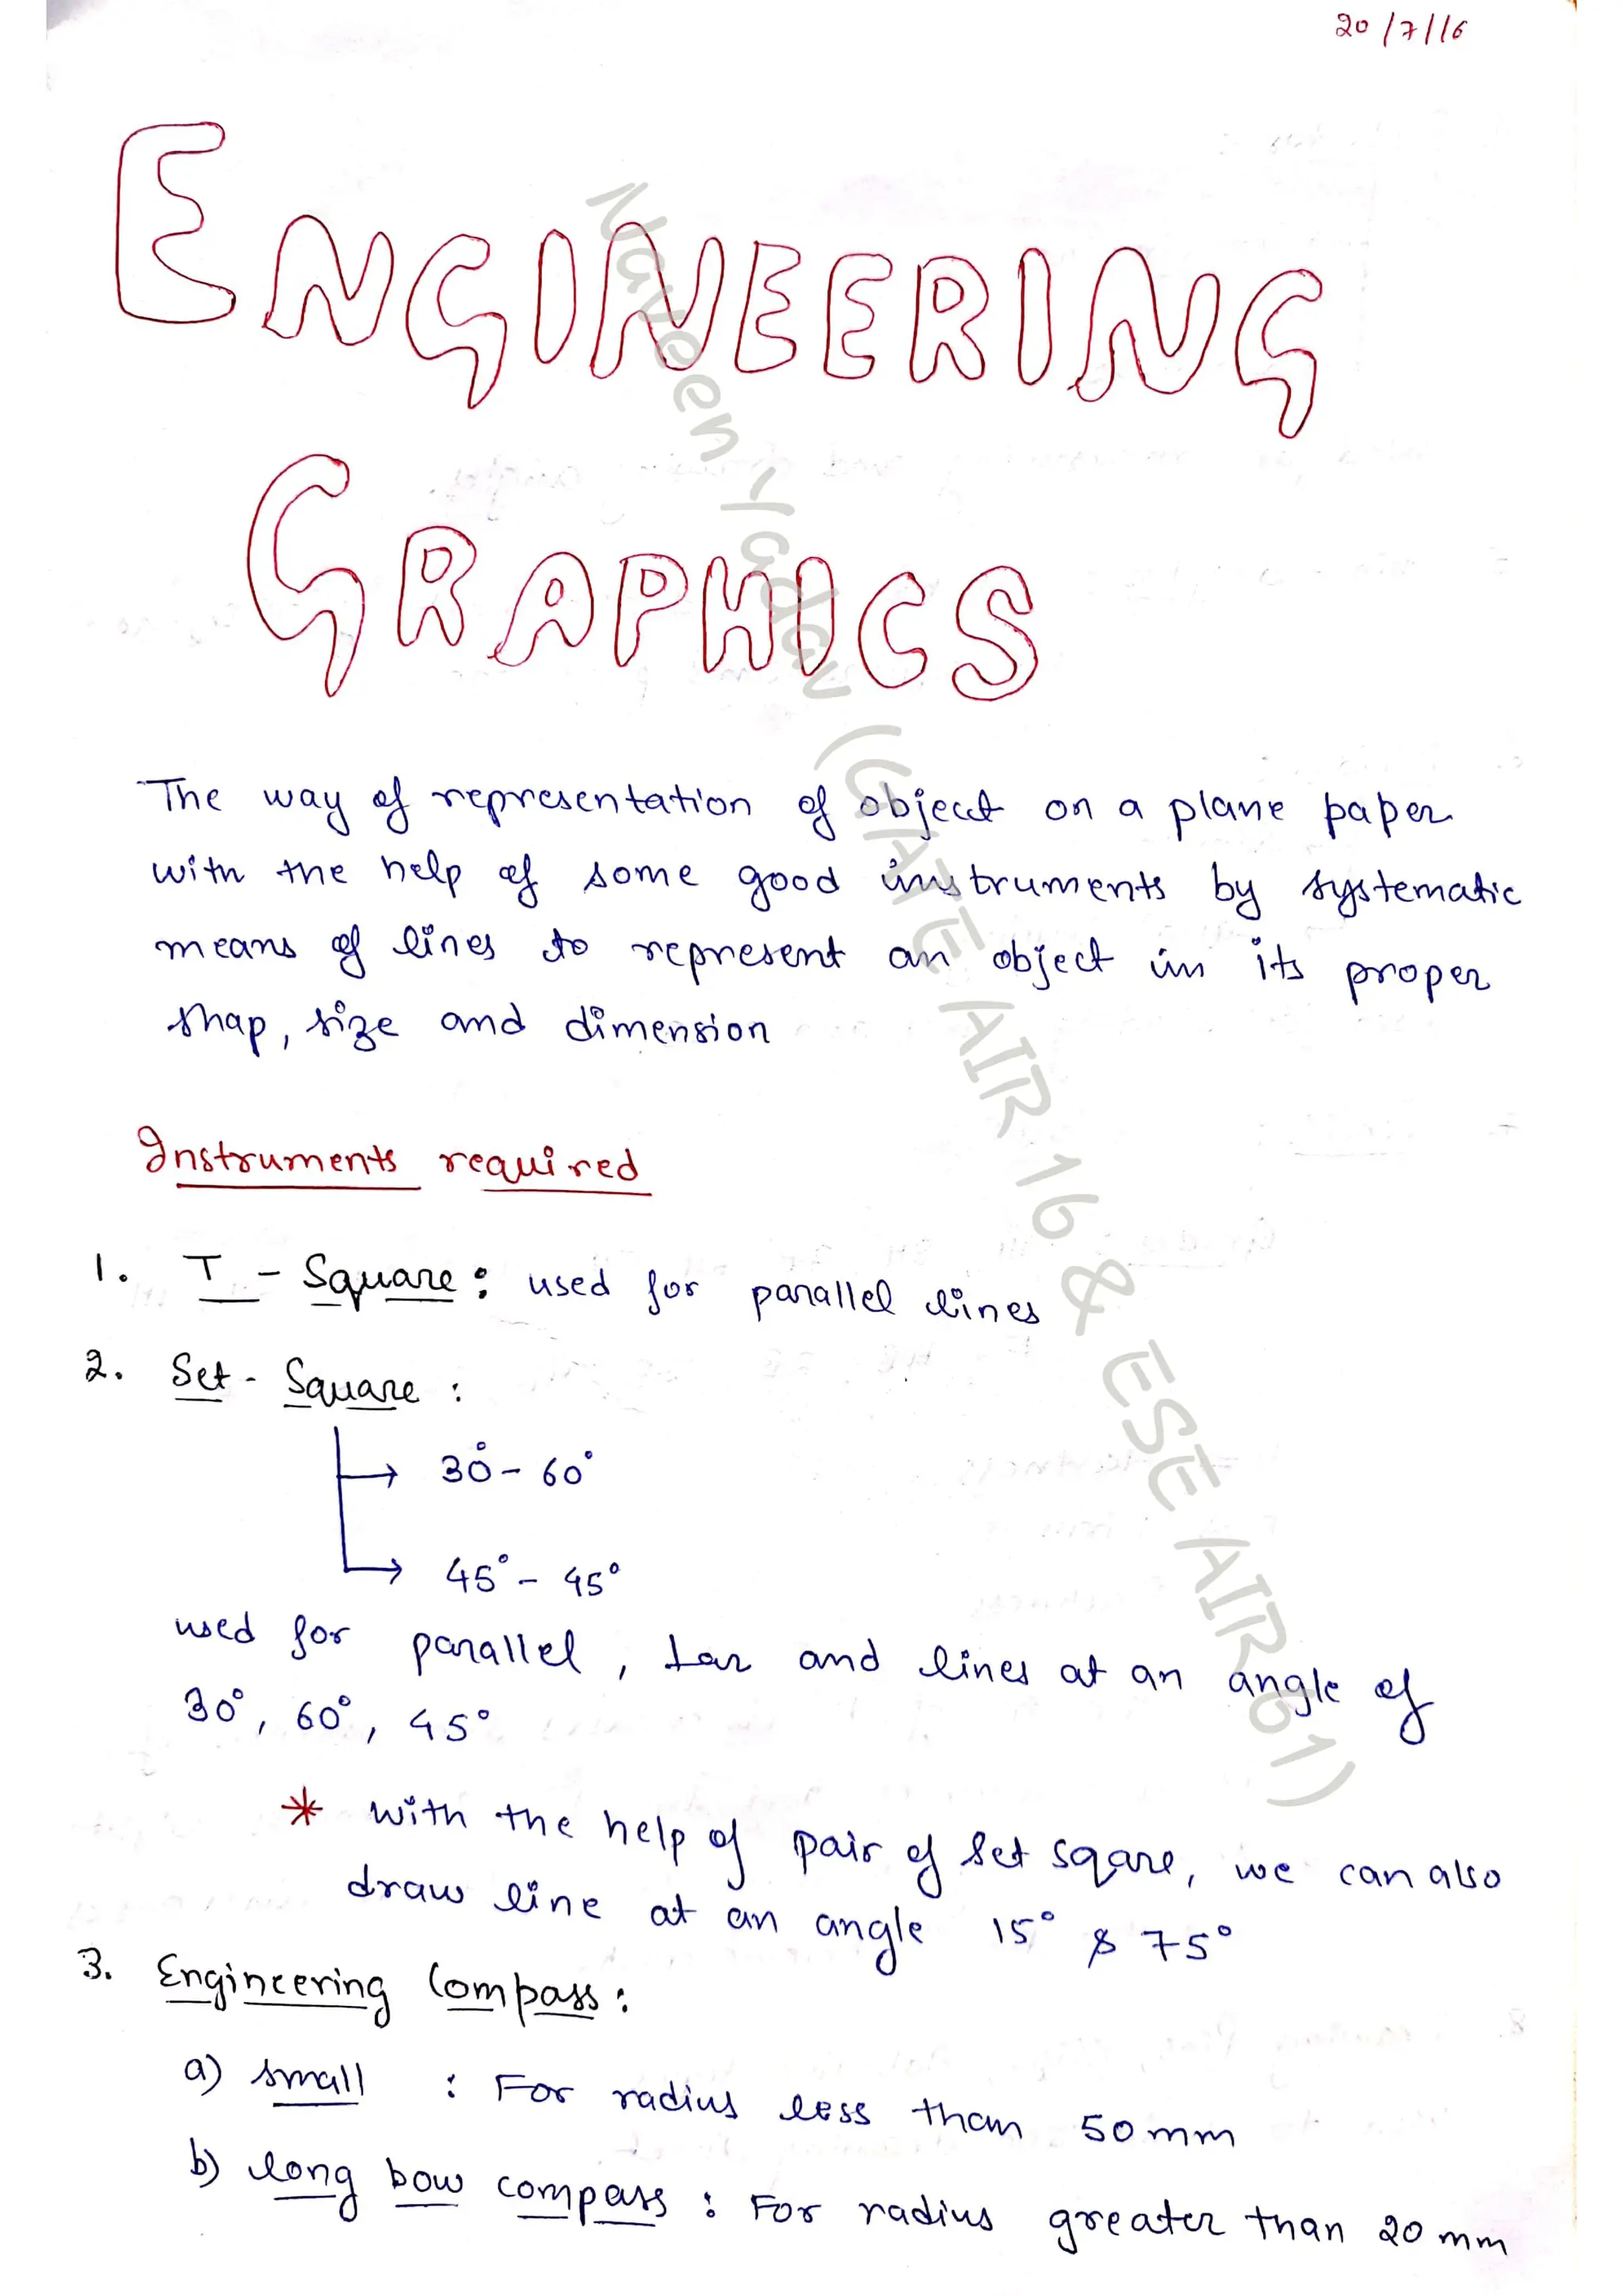 20/7/16
ENGINEERING
GRAPHICS
The way of representation of object on a plane paper
with the help of some good instruments by systematic
means of lines to represent an object in its proper
shap, size and dimension
Instruments required
1. T - Square: used for parallel lines
2. Set - Square :
→ 30° - 60°
→ 45° - 45°
used for parallel, ⊥ar and lines at an angle of
30°, 60°, 45°
* with the help of pair of set sqare, we can also
draw line at an angle 15° & 75°
3. Engineering Compass:
a) small : For radius less than 50 mm
b) long bow compass : For radius greater than 20 mm
Naveen Yadav (GATE AIR 16 & ESE AIR 61)